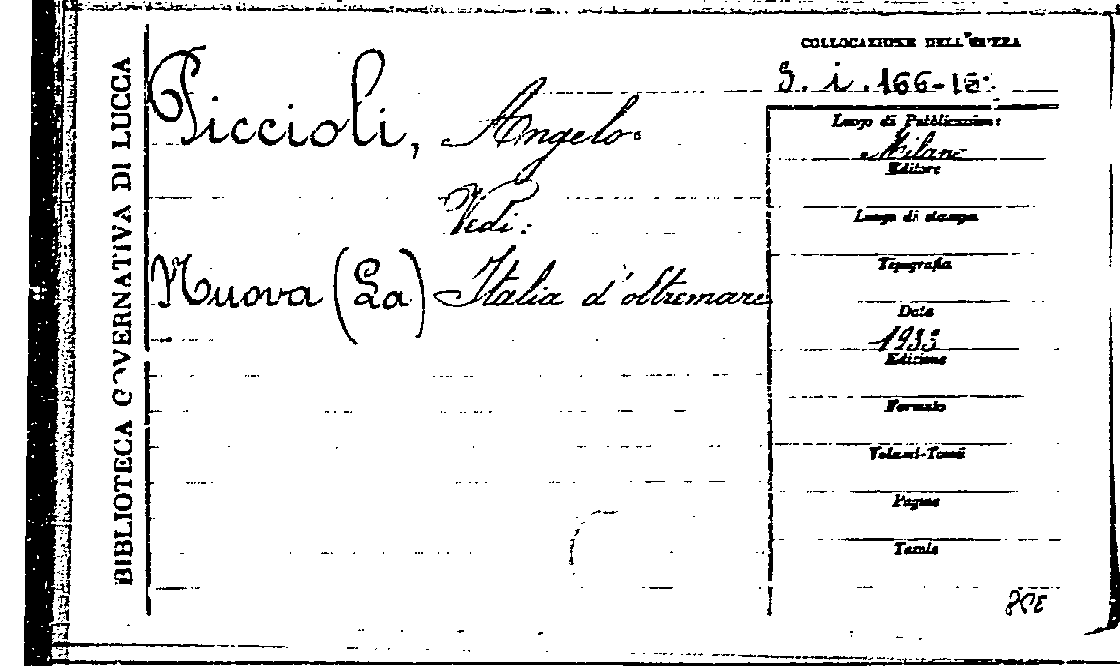 BIBLIOTECA GOVERNATIVA DI LUCCA
COLLOCAZIONE DELL'OPERA
S. i. 166-
Piccioli, Angelo.
Vedi:
Nuova (La) Italia d'oltremare
Luogo di Pubblicazione
Milano
Editore
Luogo di stampa
Tipografia
Data
1933
Edizione
Formato
Volumi-Tomi
Pagine
Tavole